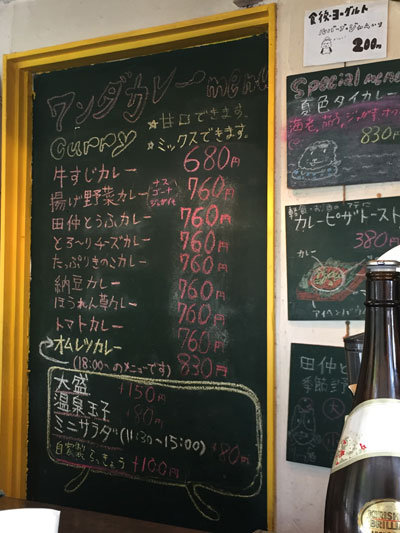 ワンダカレー menu
Curry
★甘口できます。
★ミックスできます。
牛すじカレー 680円
揚げ野菜カレー ナス 760円
田仲とうふカレー 760円
とろ〜りチーズカレー 760円
たっぷりきのこカレー 760円
納豆カレー 760円
ほうれん草カレー 760円
トマトカレー 760円
オムレツカレー 830円
(18:00〜のメニューです)
大盛 +150円
温泉玉子 +80円
ミニサラダ(11:30〜15:00) +80円
自家製らっきょう +100円
食後ヨーグルト
200円
Special menu
夏色タイカレー
830円
カレーピザトースト
380円
カレー
田仲と
季節野
大